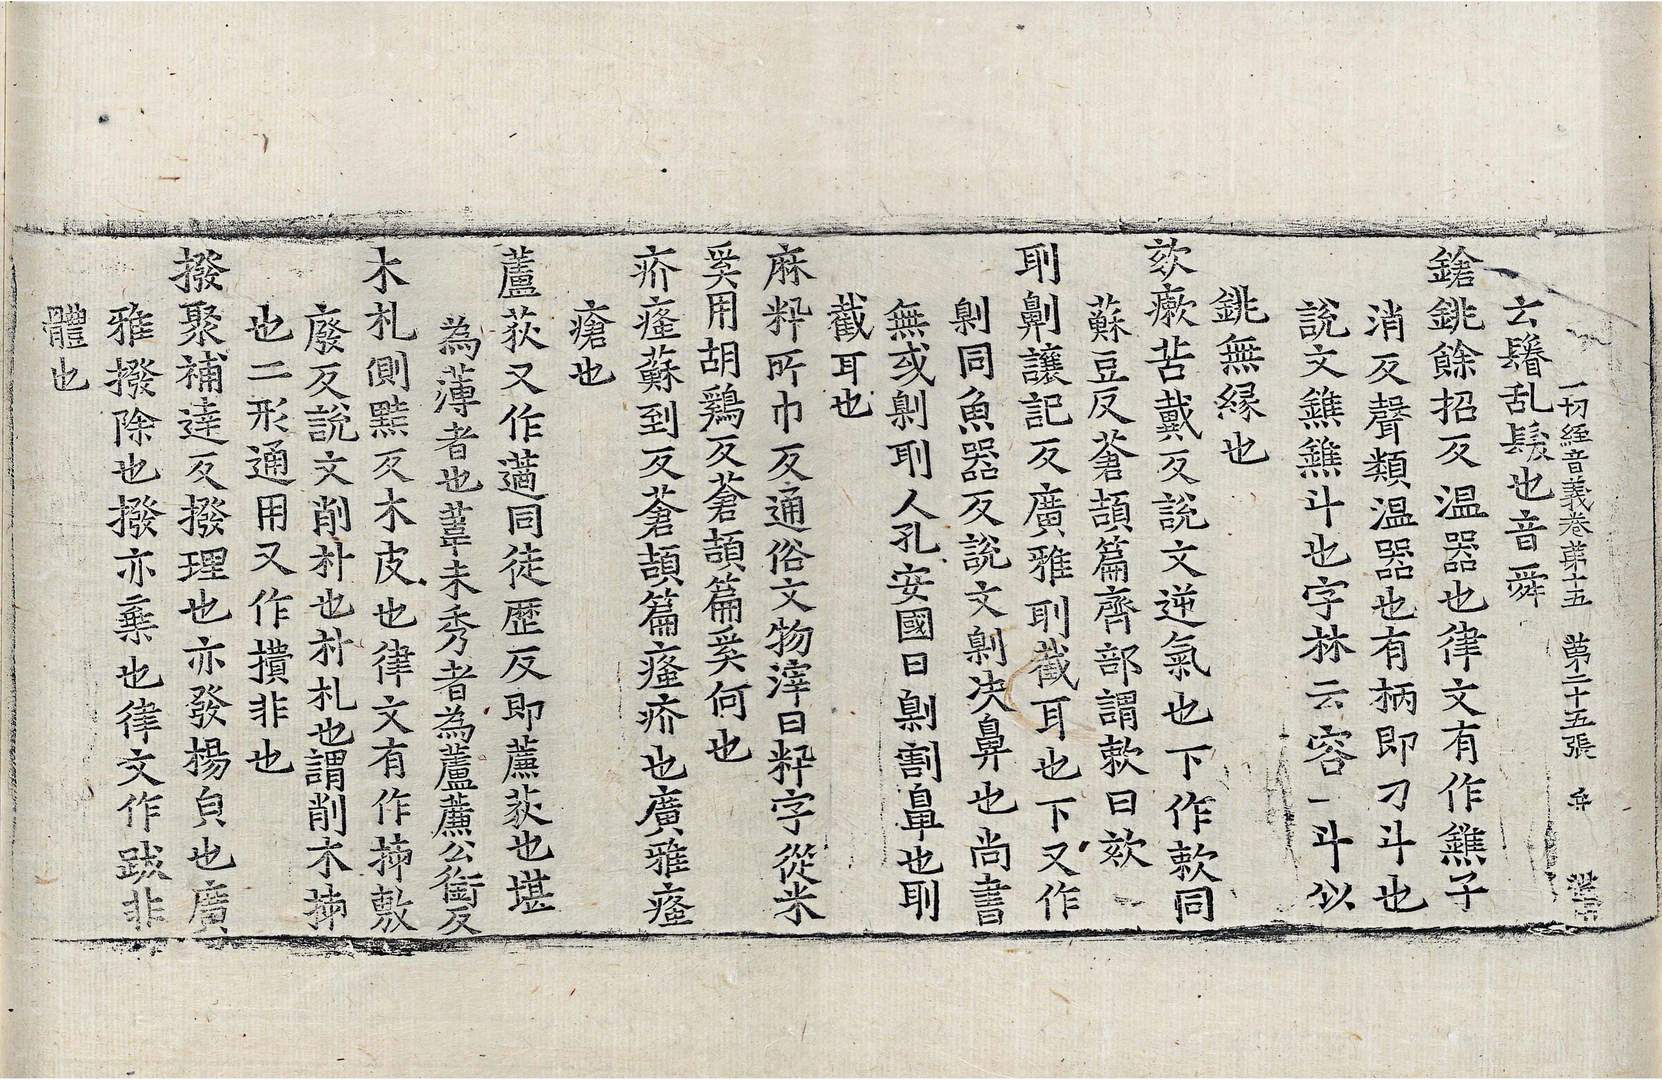 一切經音義卷第十五　第二十五張　弁
云鬈乱髮也音舜
鎗銚餘招反温器也律文有作鐎子
消反聲類温器也有柄即刁斗也
說文鐎鐎斗也字林云容一斗似
銚無縁也
欬瘶苦戴反說文逆氣也下作欶同
蘇豆反蒼頡篇齊部謂欶曰欬
刵劓讓記反廣雅刵截耳也下又作
劓同魚器反說文劓决鼻也尚書
無或劓刵人孔安國曰劓割鼻也刵
截耳也
麻籸所巾反通俗文物滓曰籸字從米
奚用胡雞反蒼頡篇奚何也
疥瘙蘇到反蒼頡篇瘙疥也廣雅瘙
瘡也
蘆荻又作薖同徒歷反即藨荻也堪
為薄者也葦未秀者為蘆藨公銜反
木札側黠反木皮也律文有作㧊敷
廢反說文削朴也朴札也謂削木㧊
也二形通用又作㩌非也
撥聚補達反撥理也亦發揚皃也廣
雅撥除也撥亦棄也律文作跋非
體也